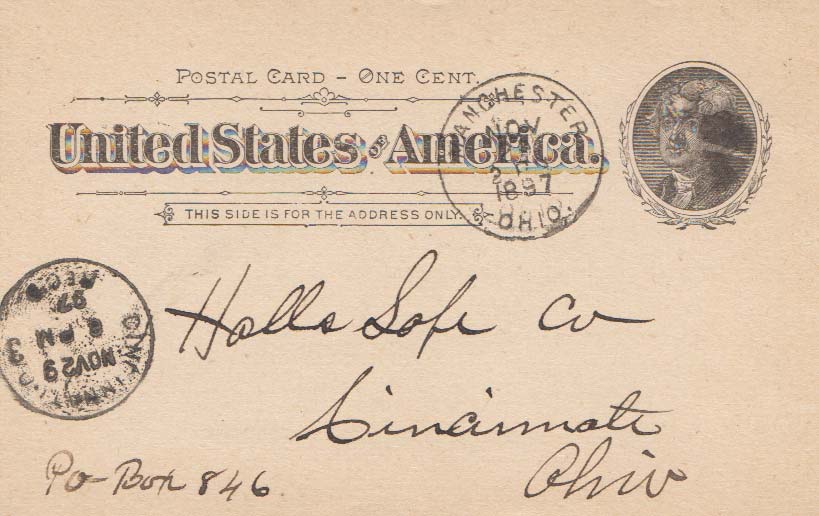 POSTAL CARD - ONE CENT.
United States OF America.
THIS SIDE IS FOR THE ADDRESS ONLY.
ANCHESTER
NOV
1897
OHIO.
REC'D
97
6 PM
NOV 29
3
CINCINNATI, O.
Halls Safe Co
Cincinnati
Ohio
Po-Box 846.